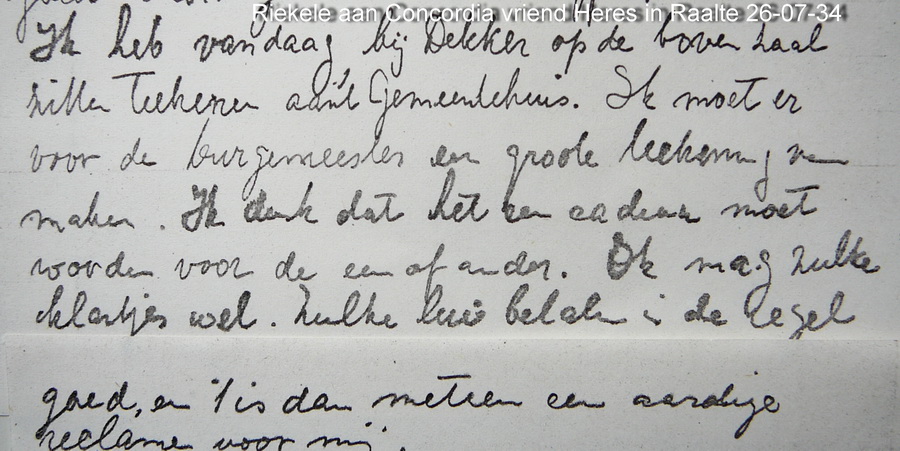 Riekele aan Concordia vriend Heres in Raalte 26-07-34
Ik heb vandaag bij Dekker op de boven zaal
zitten teekenen aan 't Gemeentehuis. Ik moet er
voor de burgemeester een groote teekening van
maken. Ik denk dat het een cadeau moet
worden voor de een of ander. Ik mag zulke
klantjes wel. Zulke lui betalen in de regel
goed, en 't is dan meteen een aardige
reclame voor mij.